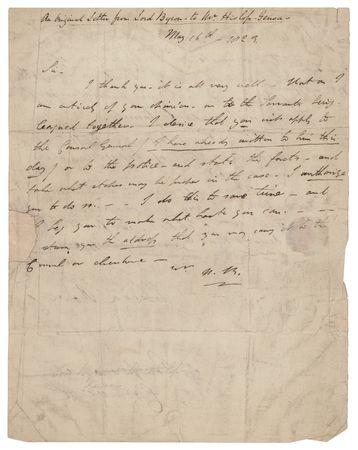 An Original Letter from Lord Byron - to Mr Hislop Genoa -
May 16th - 1823.
Sir -
I thank you - it is all very well - but as I
am entirely of your opinion - as to the Servants being
leagued together - I desire that you will apply to
the Consul General (I have already written to him this
day) or to the police - and state the facts - and
take what steps may be in the case - I authorize
you to do so. - I do this to save time - and
I beg you to make what haste you can. -
the address that you may carry it to the
Consul or elsewhere -
N. B.